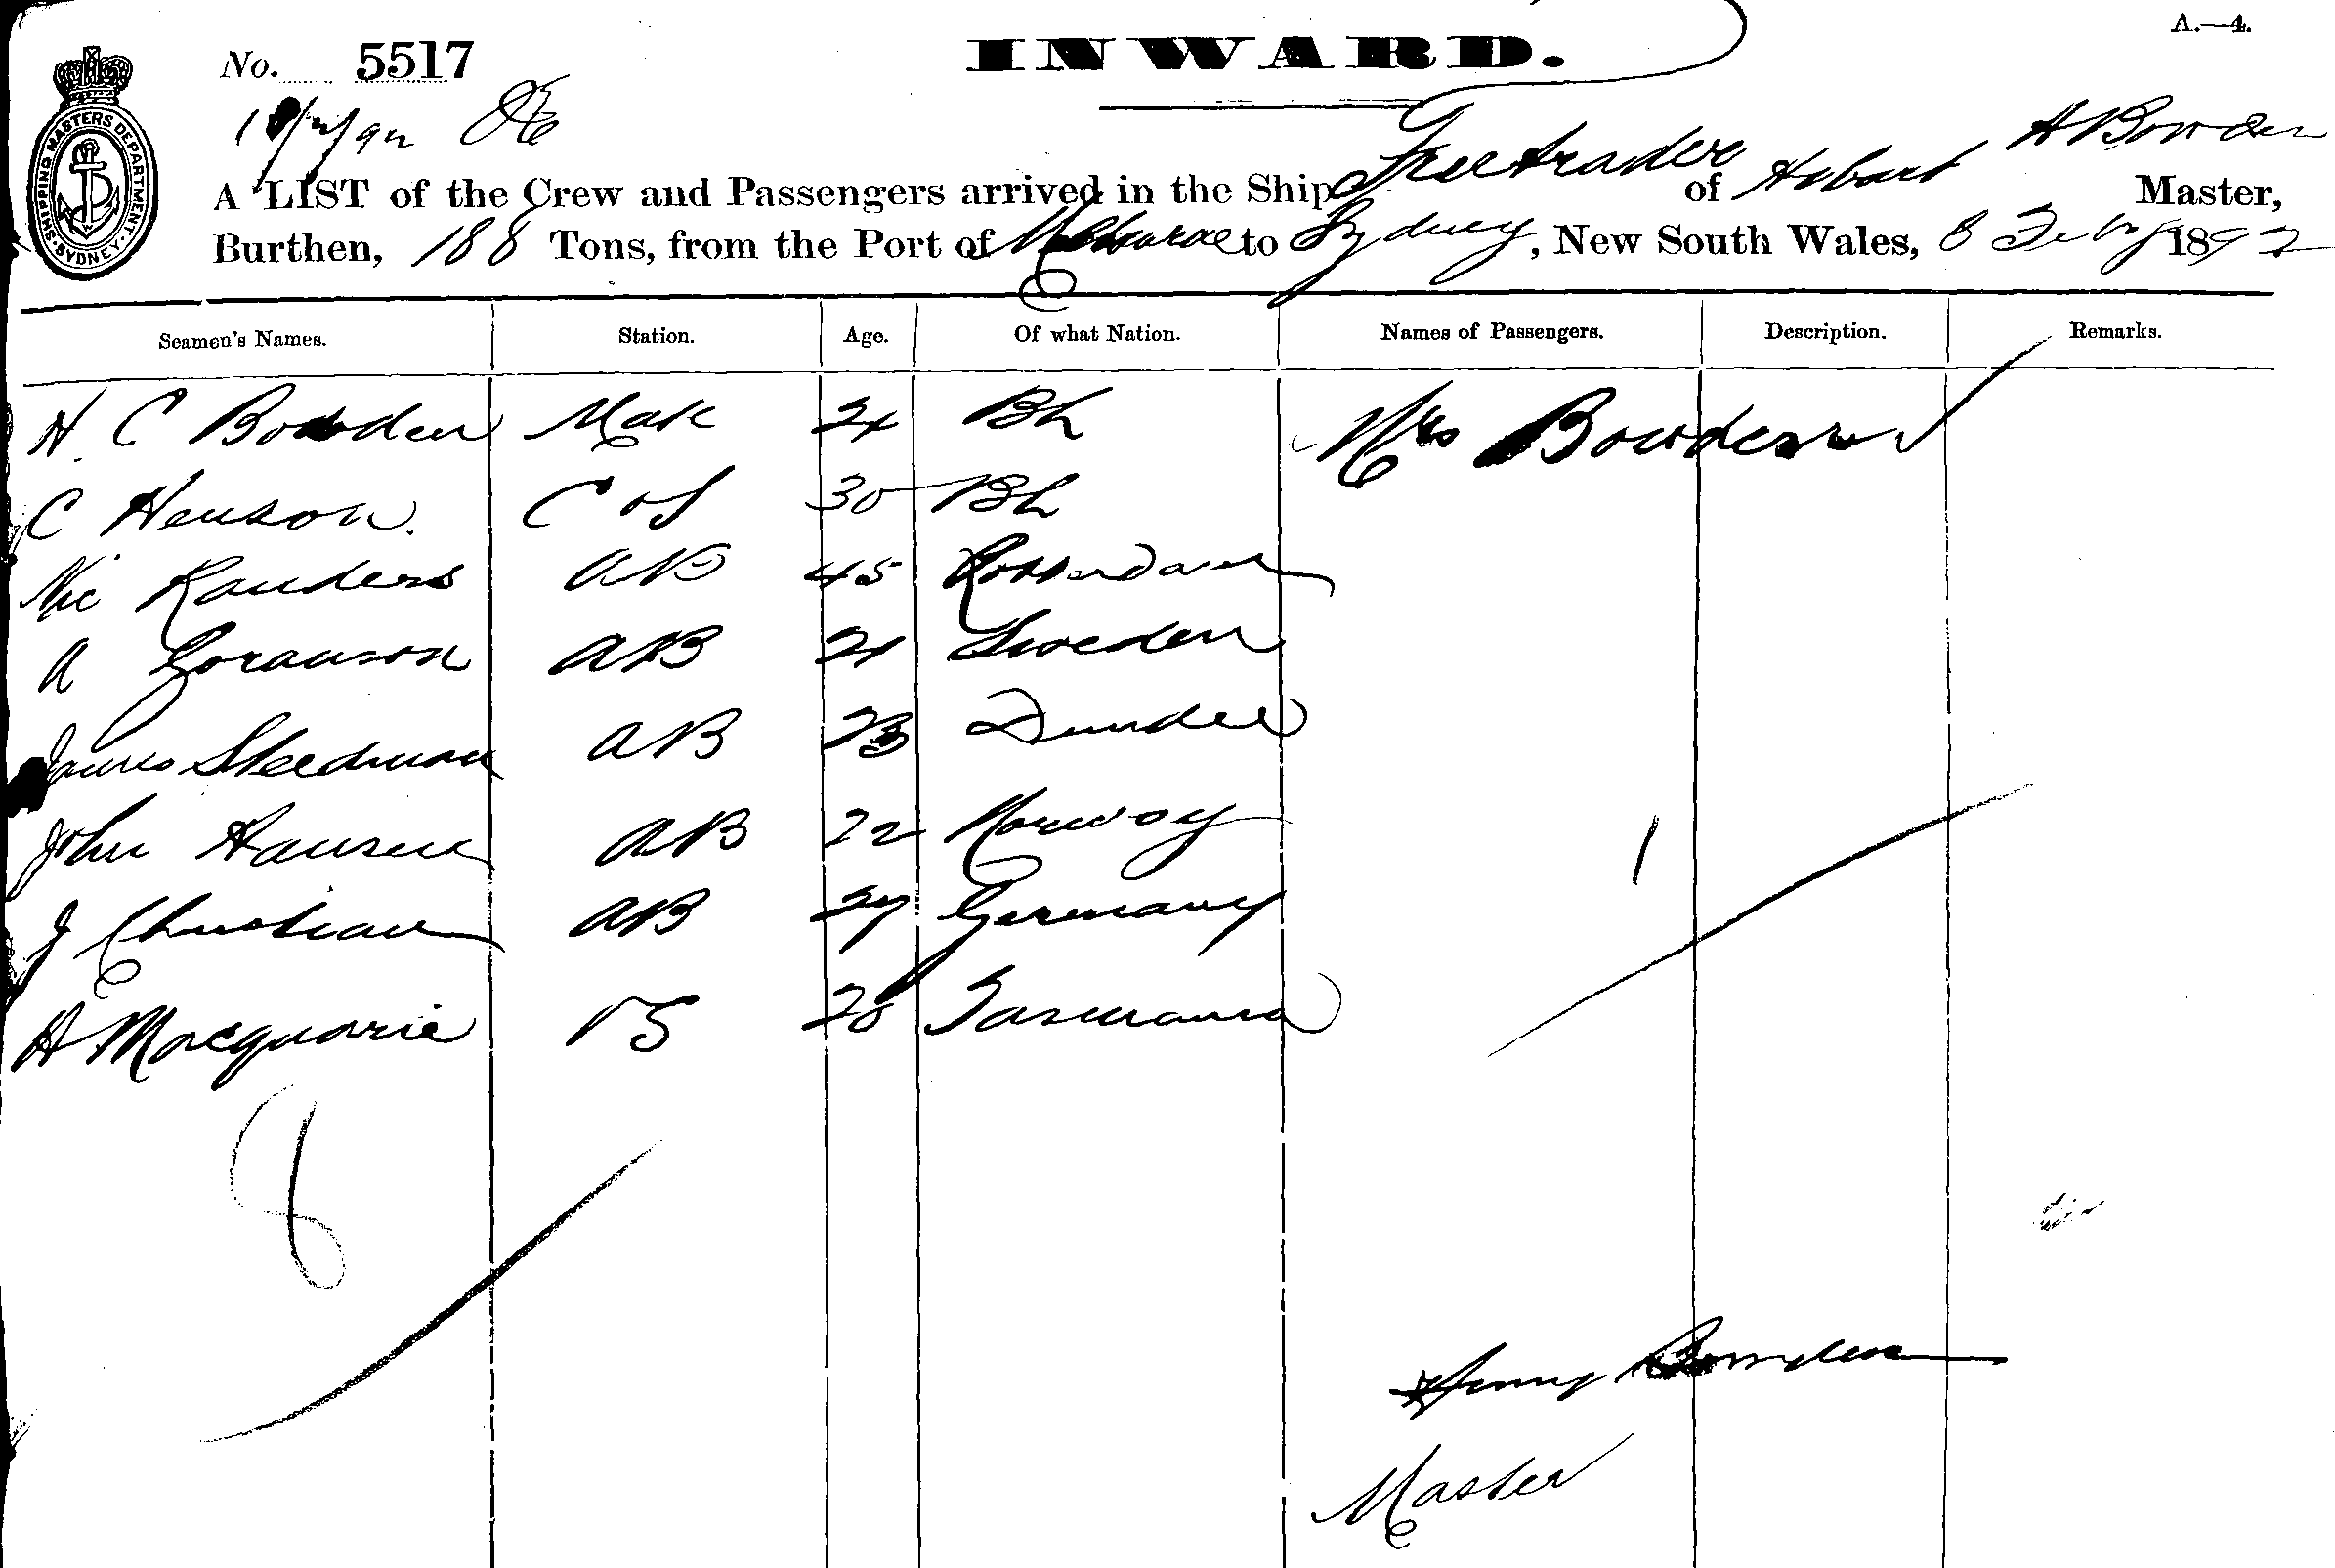 A.—4.
INWARD.
No. 5517
SHIPPING MASTERS DEPARTMENT. SYDNEY.
A LIST of the Crew and Passengers arrived in the Ship Freetrader of Hobart H Bowden Master,
Burthen, 188 Tons, from the Port of Melbourne to Sydney, New South Wales, 8 Feby 1892
Seamen's Names. Station. Age. Of what Nation. Names of Passengers. Description. Remarks.
H C Bowden Mate 24 Bh Mrs Bowden
C Henson C & S 30 Bh
Nic Randers AB 45 Rotterdam
A Goranson AB 21 Sweden
James Steedman AB 23 Dundee
John Hansen AB 22 Norway 1
J Christian AB 27 Germany
H Macquarie OS 28 Tasmania
8
Henry Bowden
Master